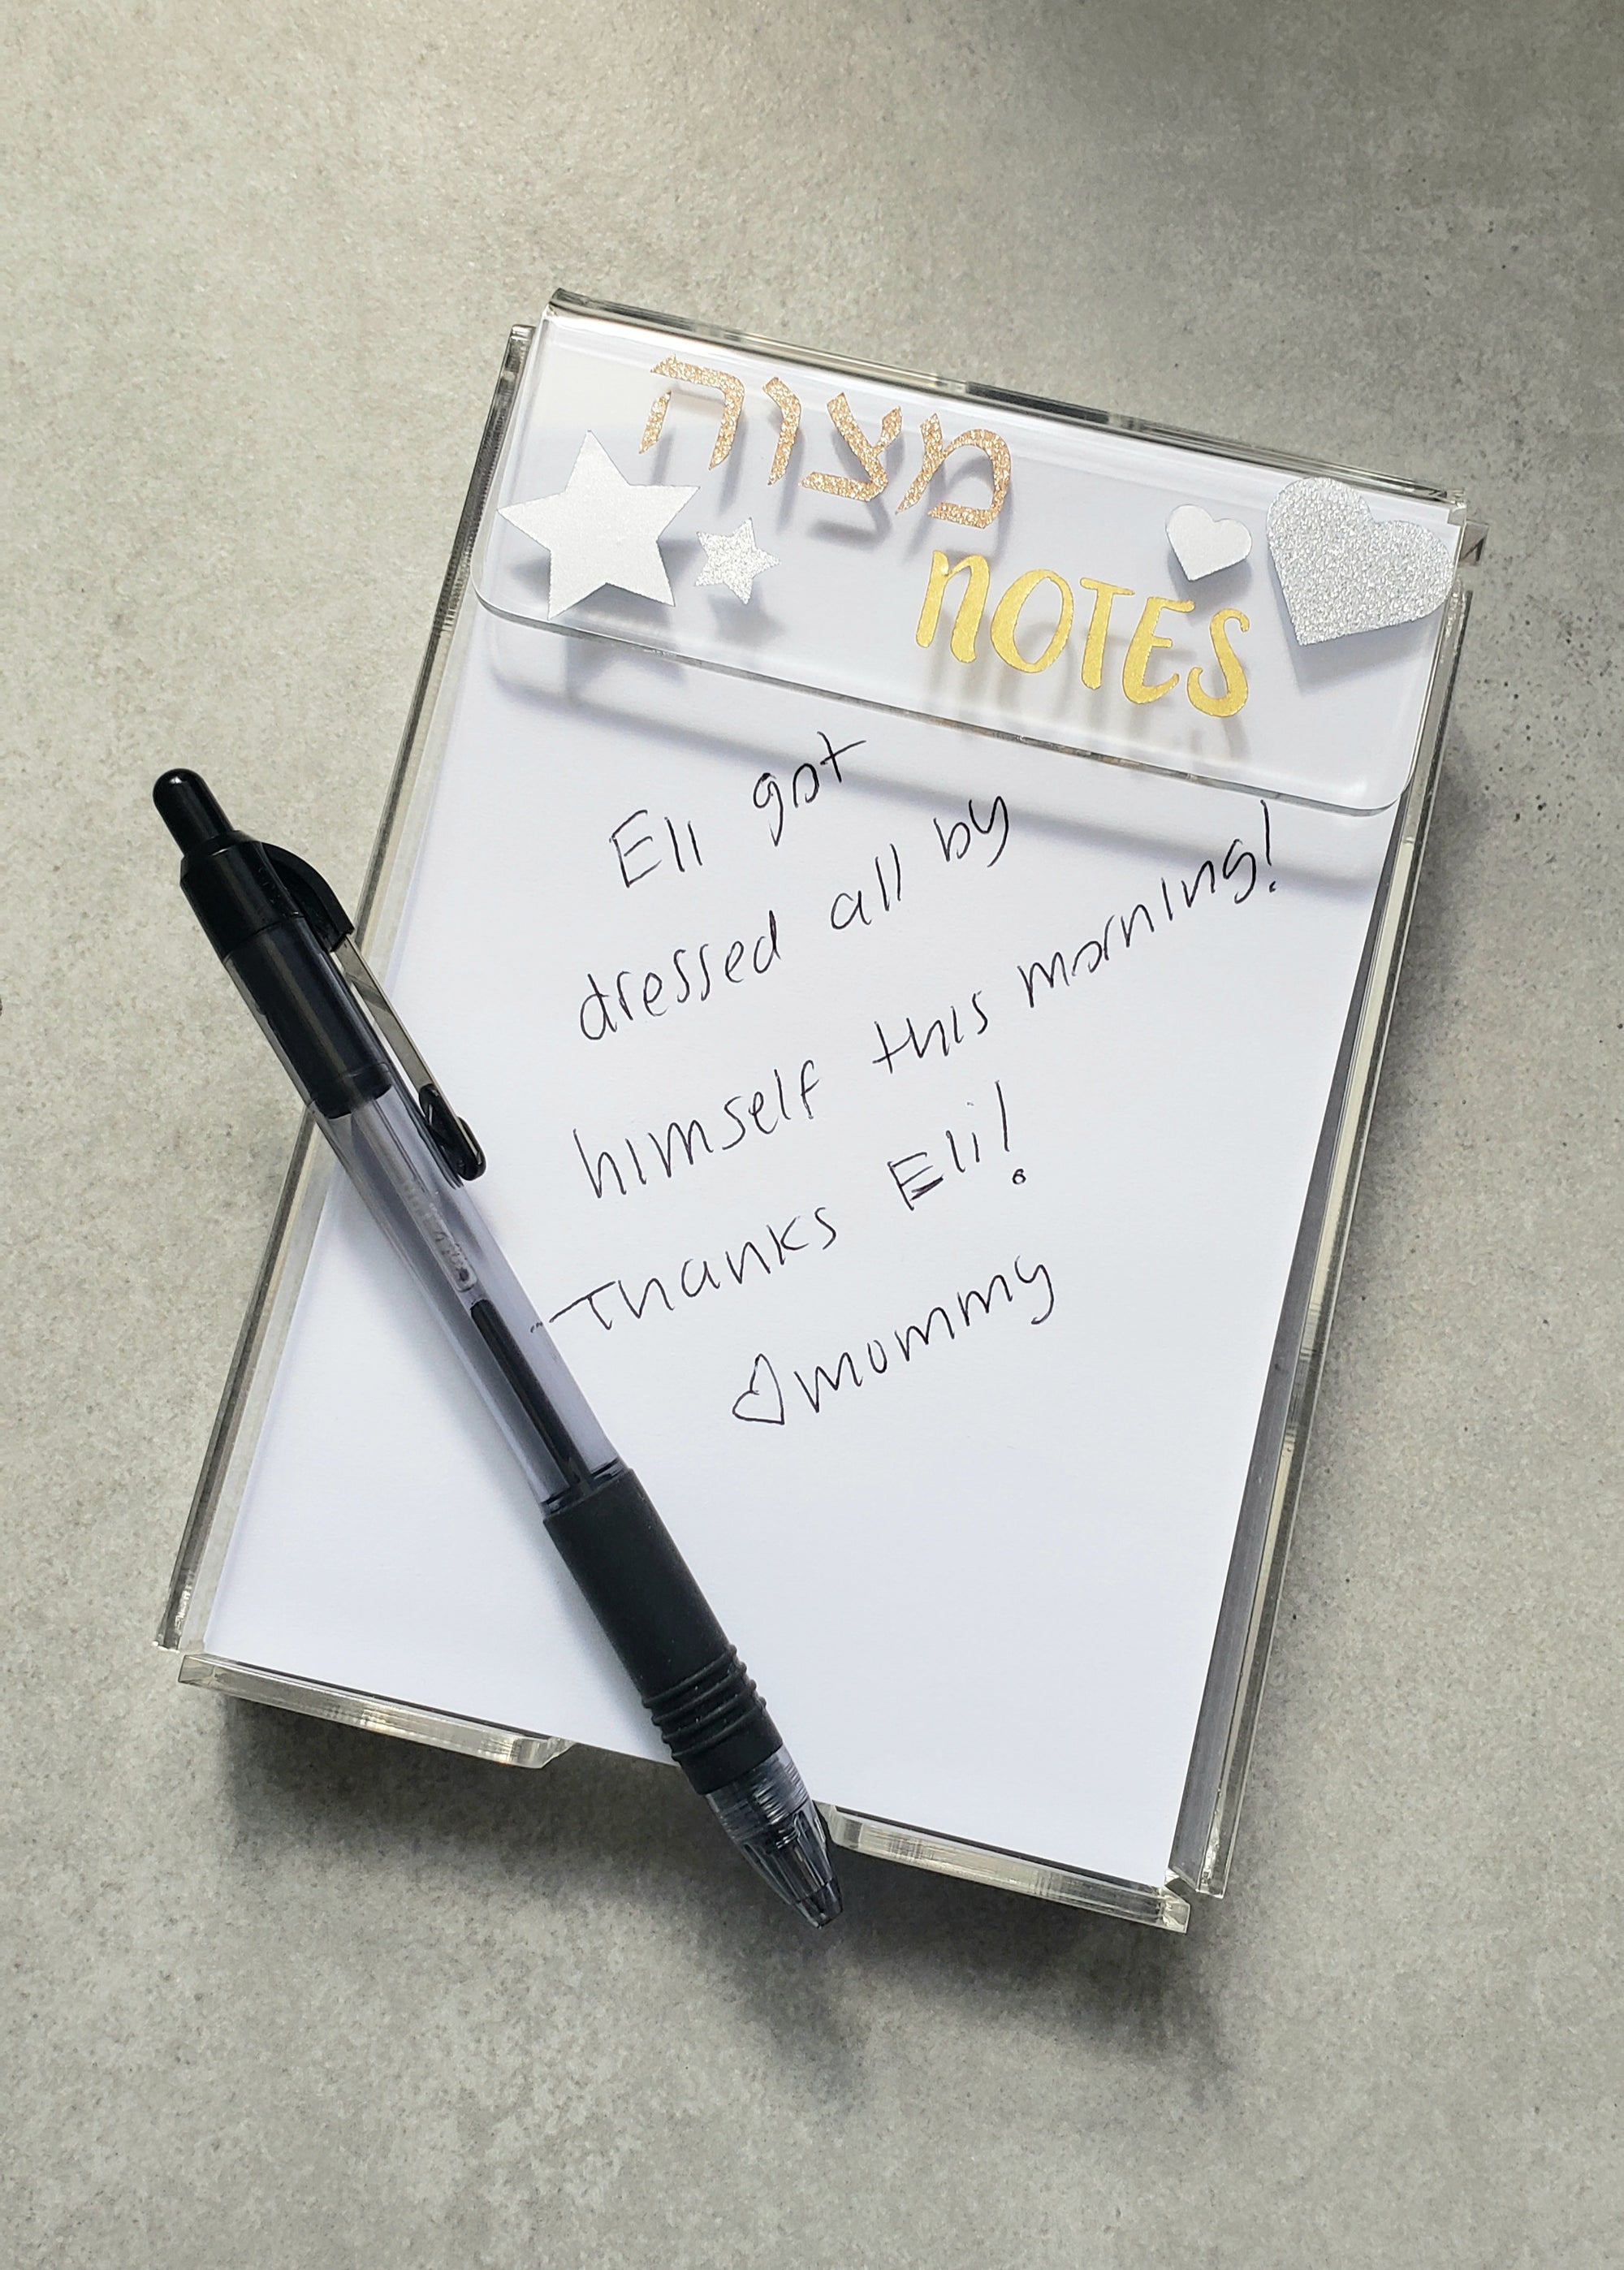 מצוה
NOTES
Eli got
dressed all by
himself this morning!
Thanks Eli!
♡mommy